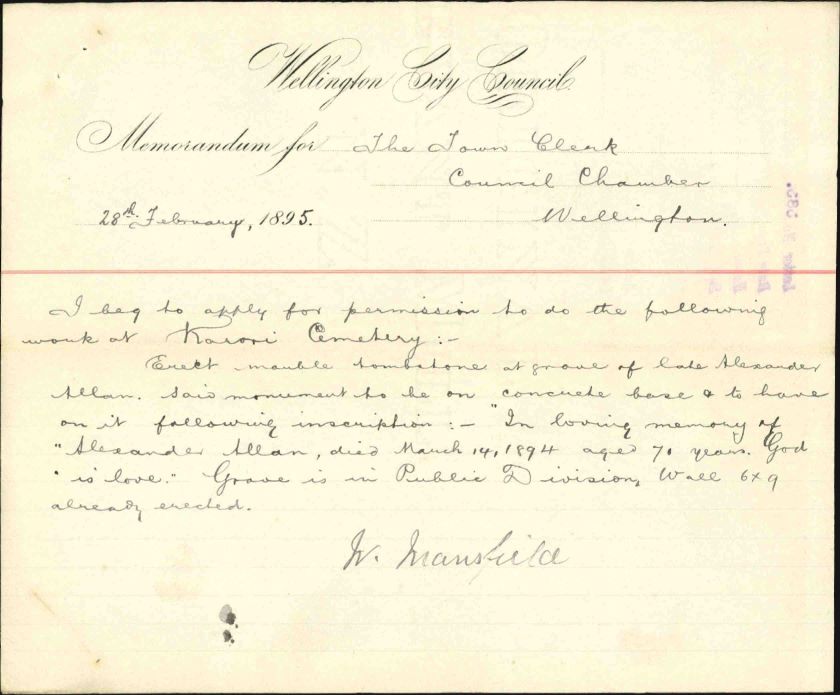 Wellington City Council
Memorandum for The Town Clerk
Council Chamber
28th February, 1895. Wellington.
585.
I beg to apply for permission to do the following
work at Karori Cemetery:-
Erect marble tombstone at grove of late Alexander
Allan. Said monument to be on concrete base & to have
on it following inscription:- "In loving memory of
"Alexander Allan, died March 14, 1894 aged 70 years. God
" is love." Grave is in Public Division, Wall 6x9
already erected.
W. Mansfield